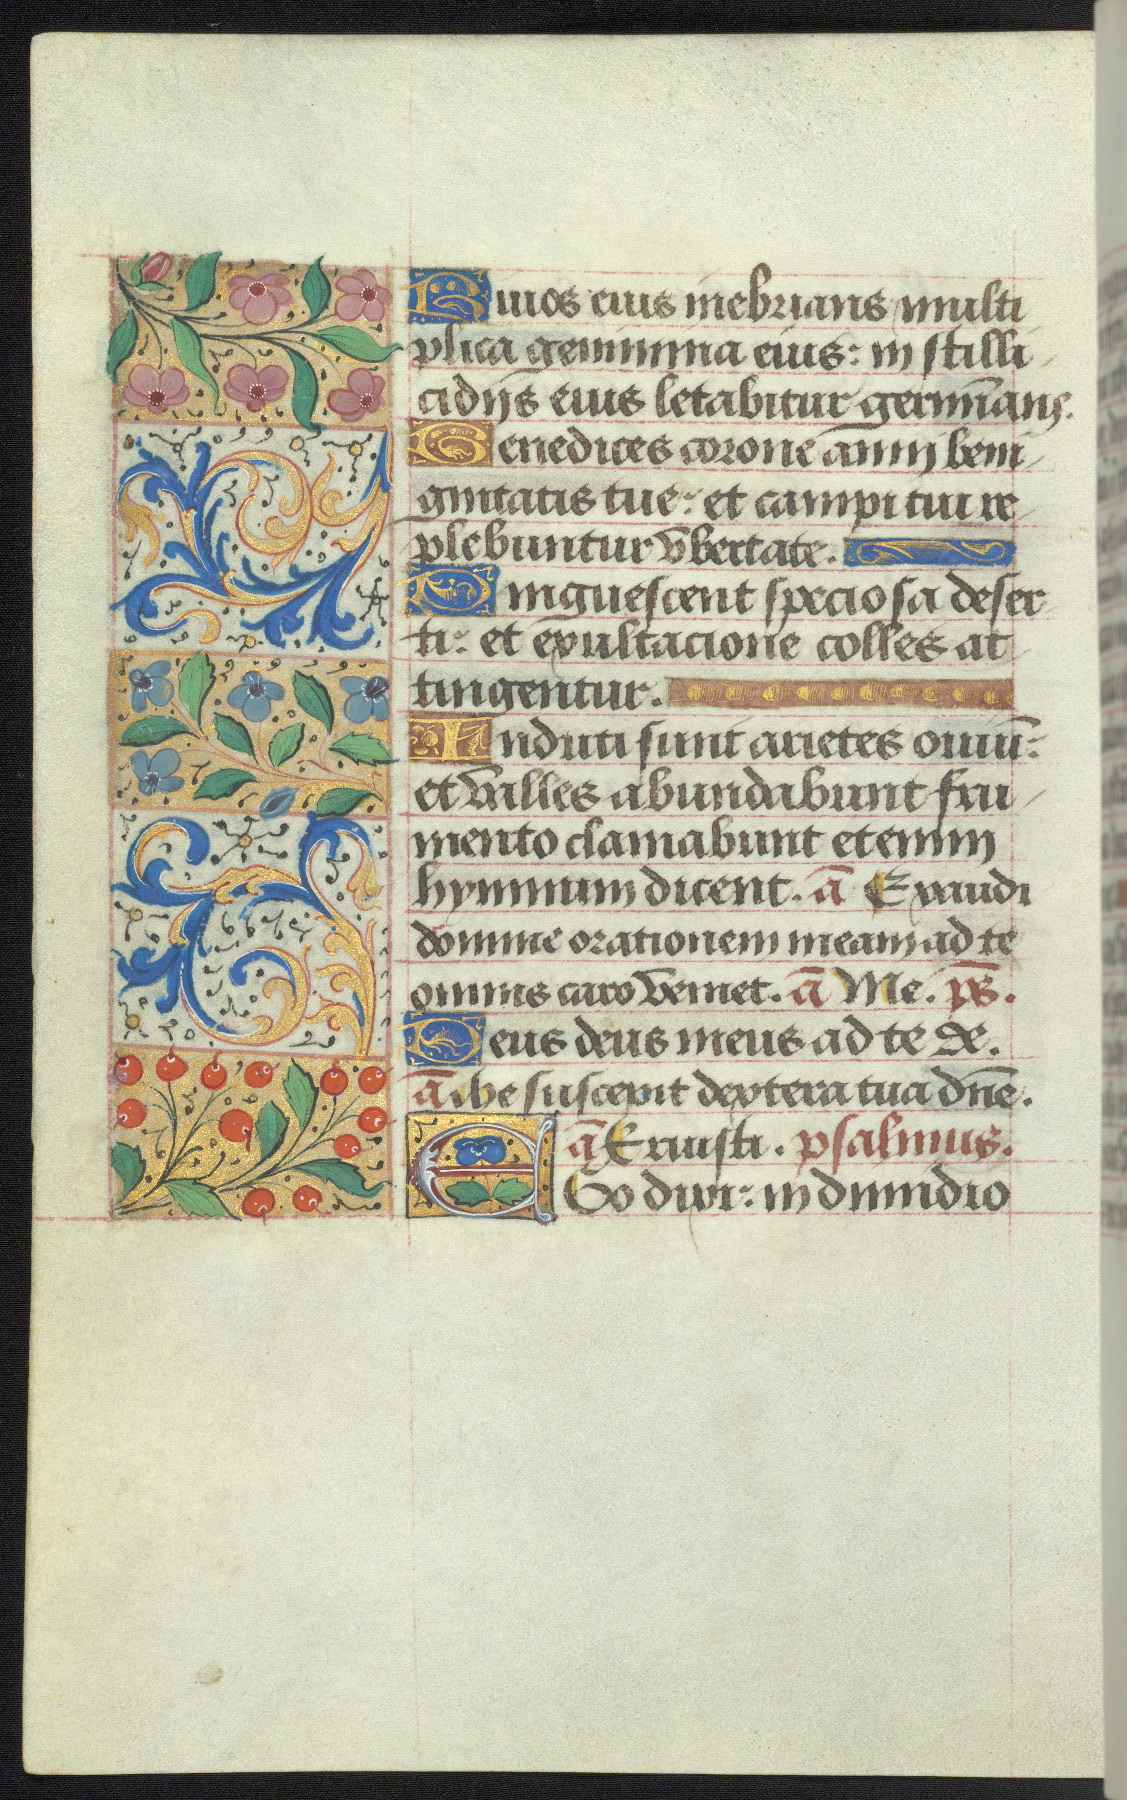 Riuos eius inebrians multi
plica genimina eius: in stilli
cidijs eius letabitur germīans.
Benedices corone anni beni
gnitatis tue: et campi tui re
plebuntur vbertate.
Pinguescent speciosa deser
ti: et exultacione colles ac
cingentur.
Induti sunt arietes ouiū:
et valles abundabunt fru
mento clamabunt etenim
hymnum dicent. ā Exaudi
domine orationem meam ad te
omnis caro veniet. ā Me. ps̄.
Deus deus meus ad te de.
ā Me suscepit dextera tua dn̄e.
ā Eruisti. psalmus.
EGo dixi: in dimidio